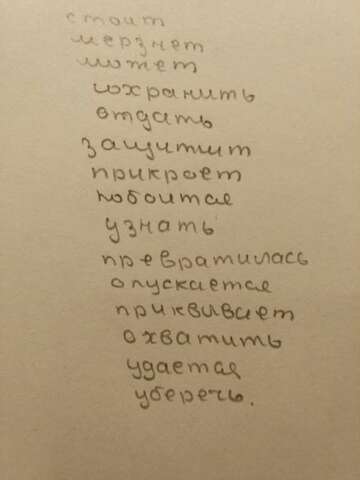 стоит
мерзнет
может
сохранить
отдать
защитит
прикроет
побоится
узнать
превратилась
опускается
приквивает
охватить
удается
уберечь.